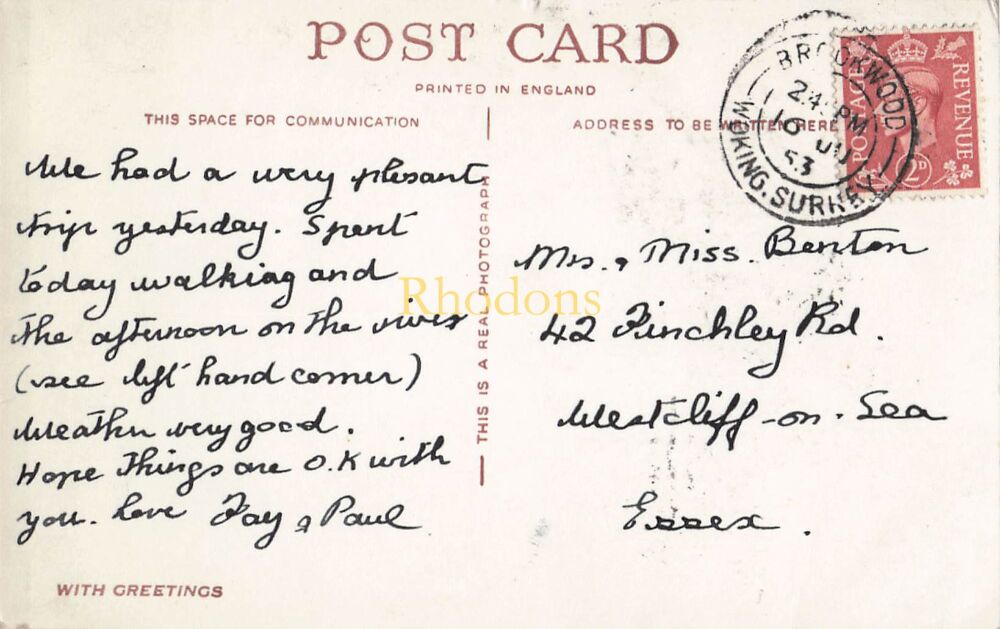 POST CARD
PRINTED IN ENGLAND
THIS SPACE FOR COMMUNICATION
ADDRESS TO BE WRITTEN HERE
BROOKWOOD
PM
53
WOKING, SURREY
POSTAGE
REVENUE
2D
We had a very plesant
trip yesterday. Spent
today walking and
the afternoon on the river
(see left hand corner)
Weather very good.
Hope things are O.K with
you. Love Fay & Paul
THIS IS A REAL PHOTOGRAPH
Rhodons
Mrs. & Miss. Benton
42 Finchley Rd.
Westcliff-on-Sea
Essex.
WITH GREETINGS